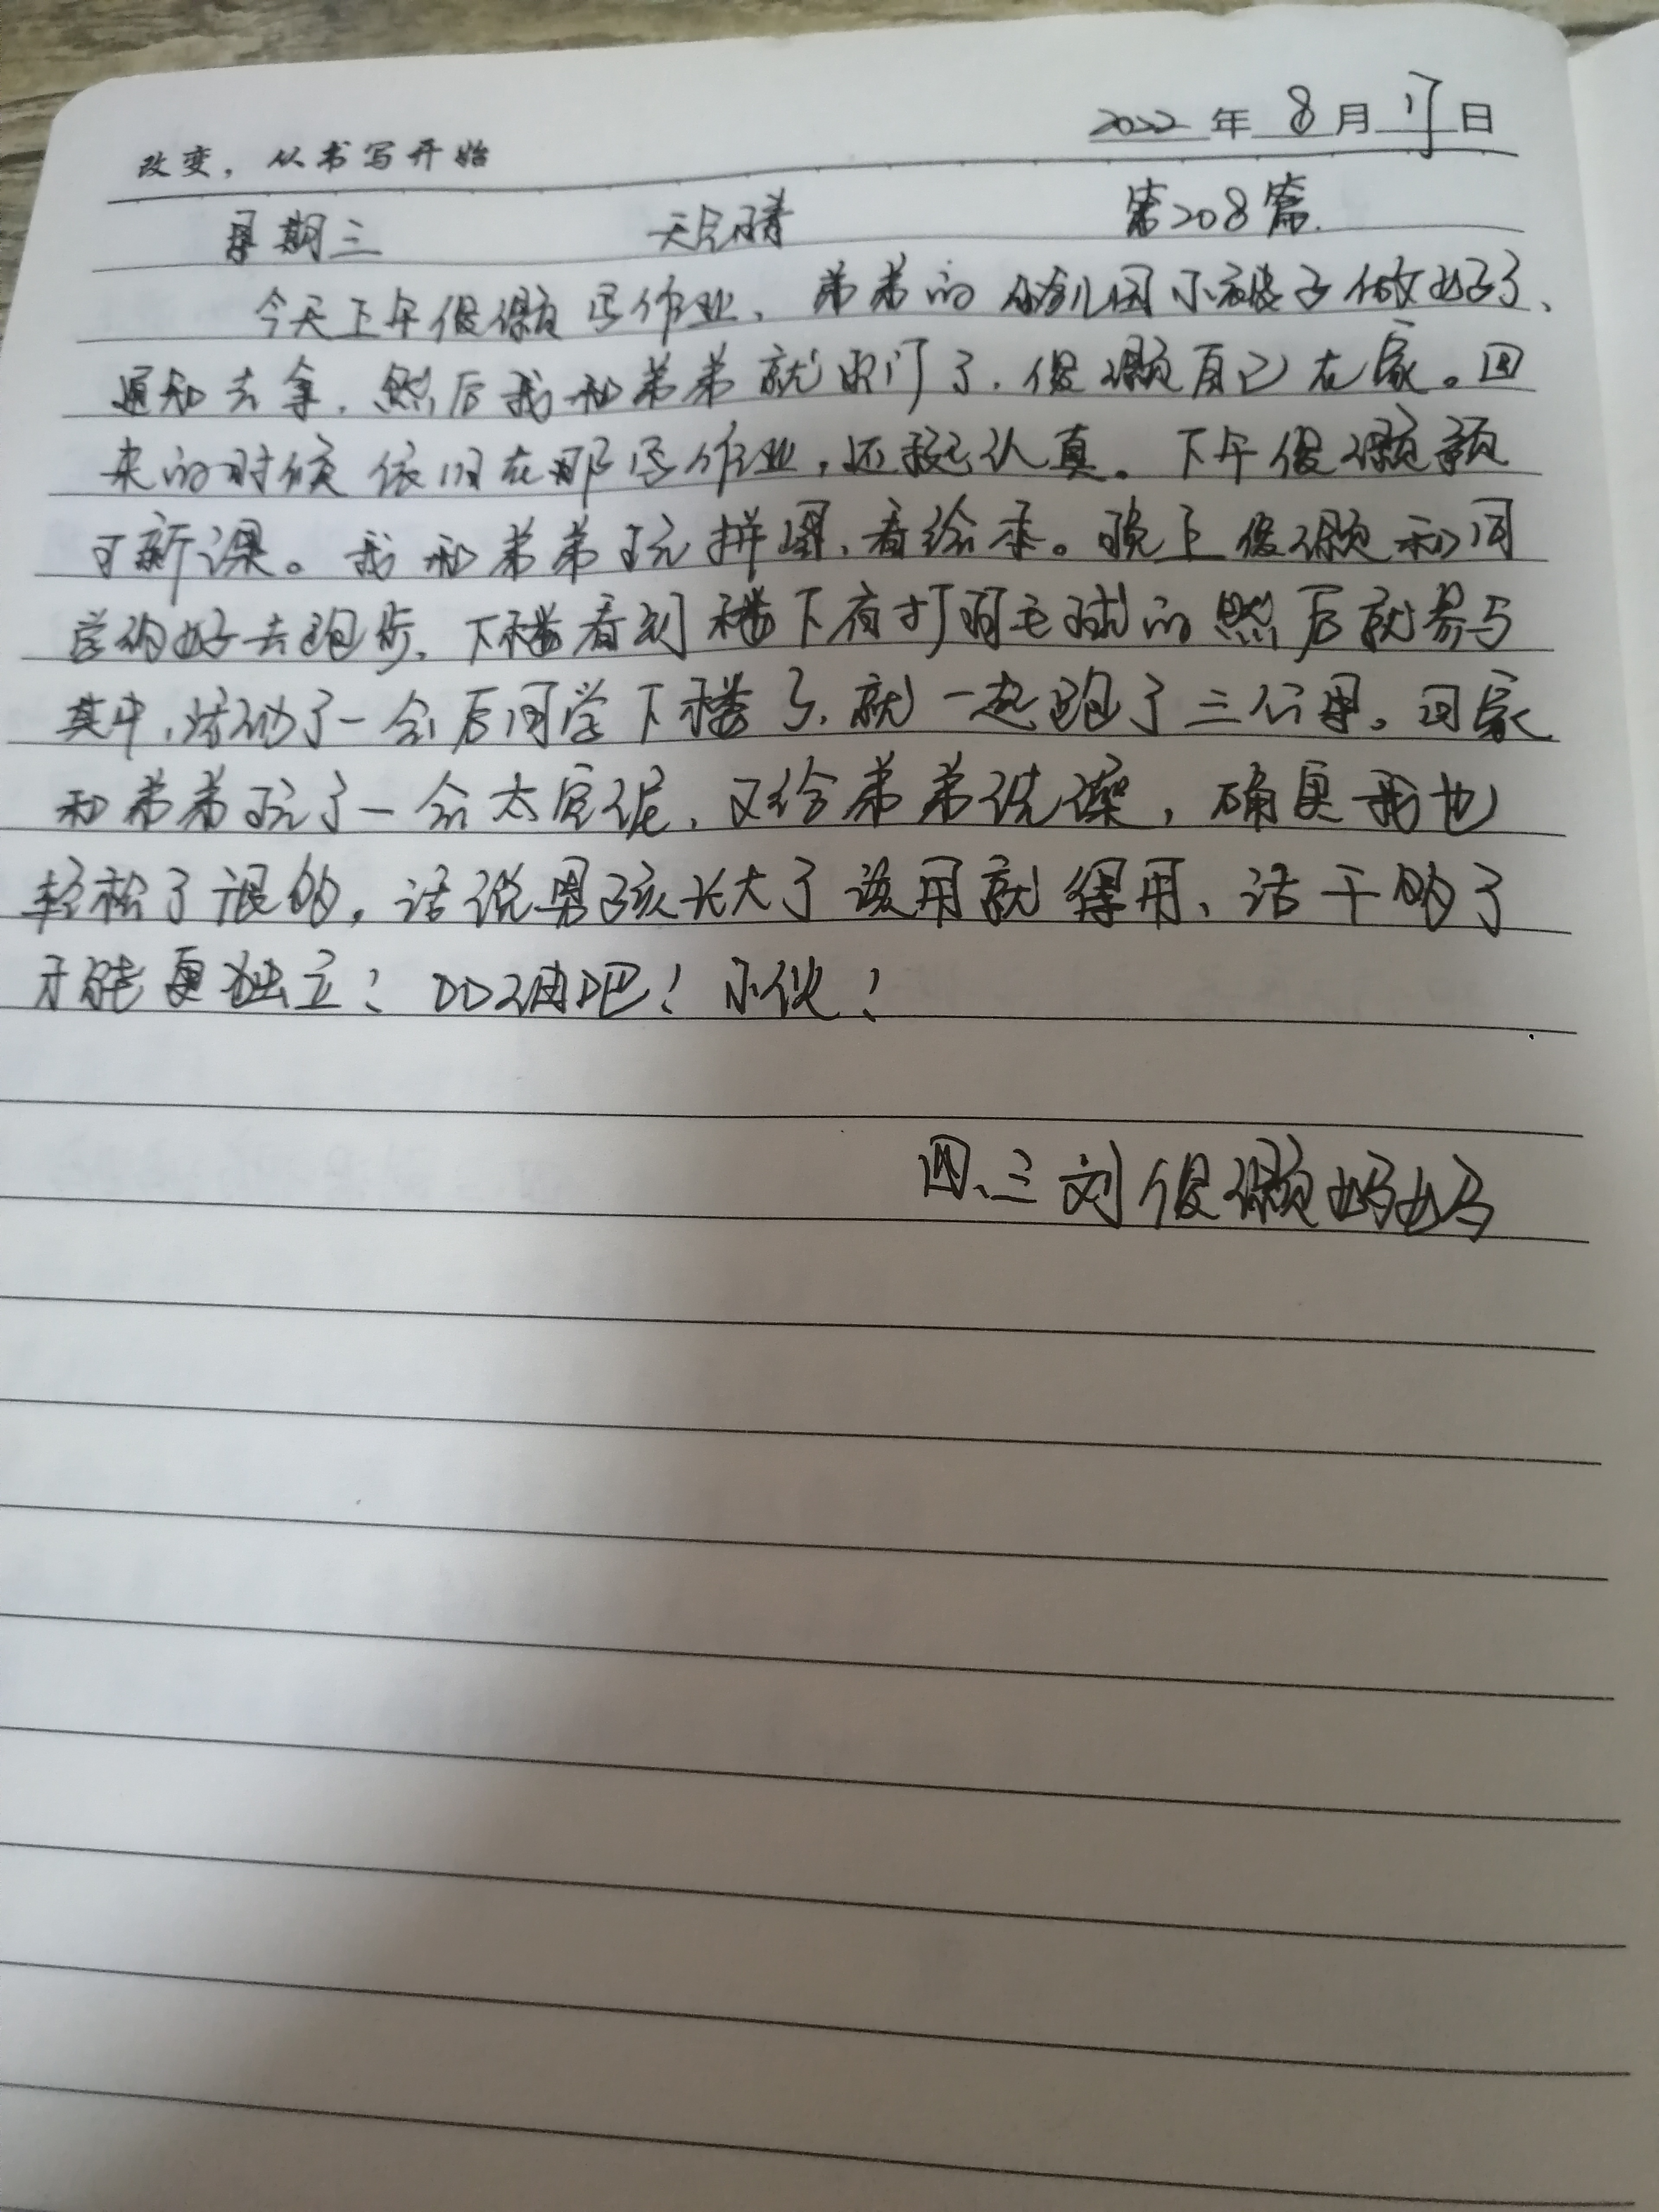 2022年8月17日
改变，从书写开始
星期三 天气晴 第208篇.
今天上午俊颢写作业、弟弟的幼儿园小被子做好了、
通知去拿，然后我和弟弟就出门了，俊颢自己在家。回
来的时候依旧在那写作业，还挺认真。下午俊颢预
习新课。我和弟弟玩拼图、看绘本。晚上俊颢和同
学约好去跑步，下楼看到楼下有打羽毛球的然后就参与
其中，活动了一会后同学下楼了，就一起跑了三公里。回家
和弟弟玩了一会太空泥、又给弟弟洗澡，确实我也
轻松了很多，话说男孩长大了该用就得用、活干的了
才能更独立！加油吧！小伙！
四.三刘俊颢妈妈